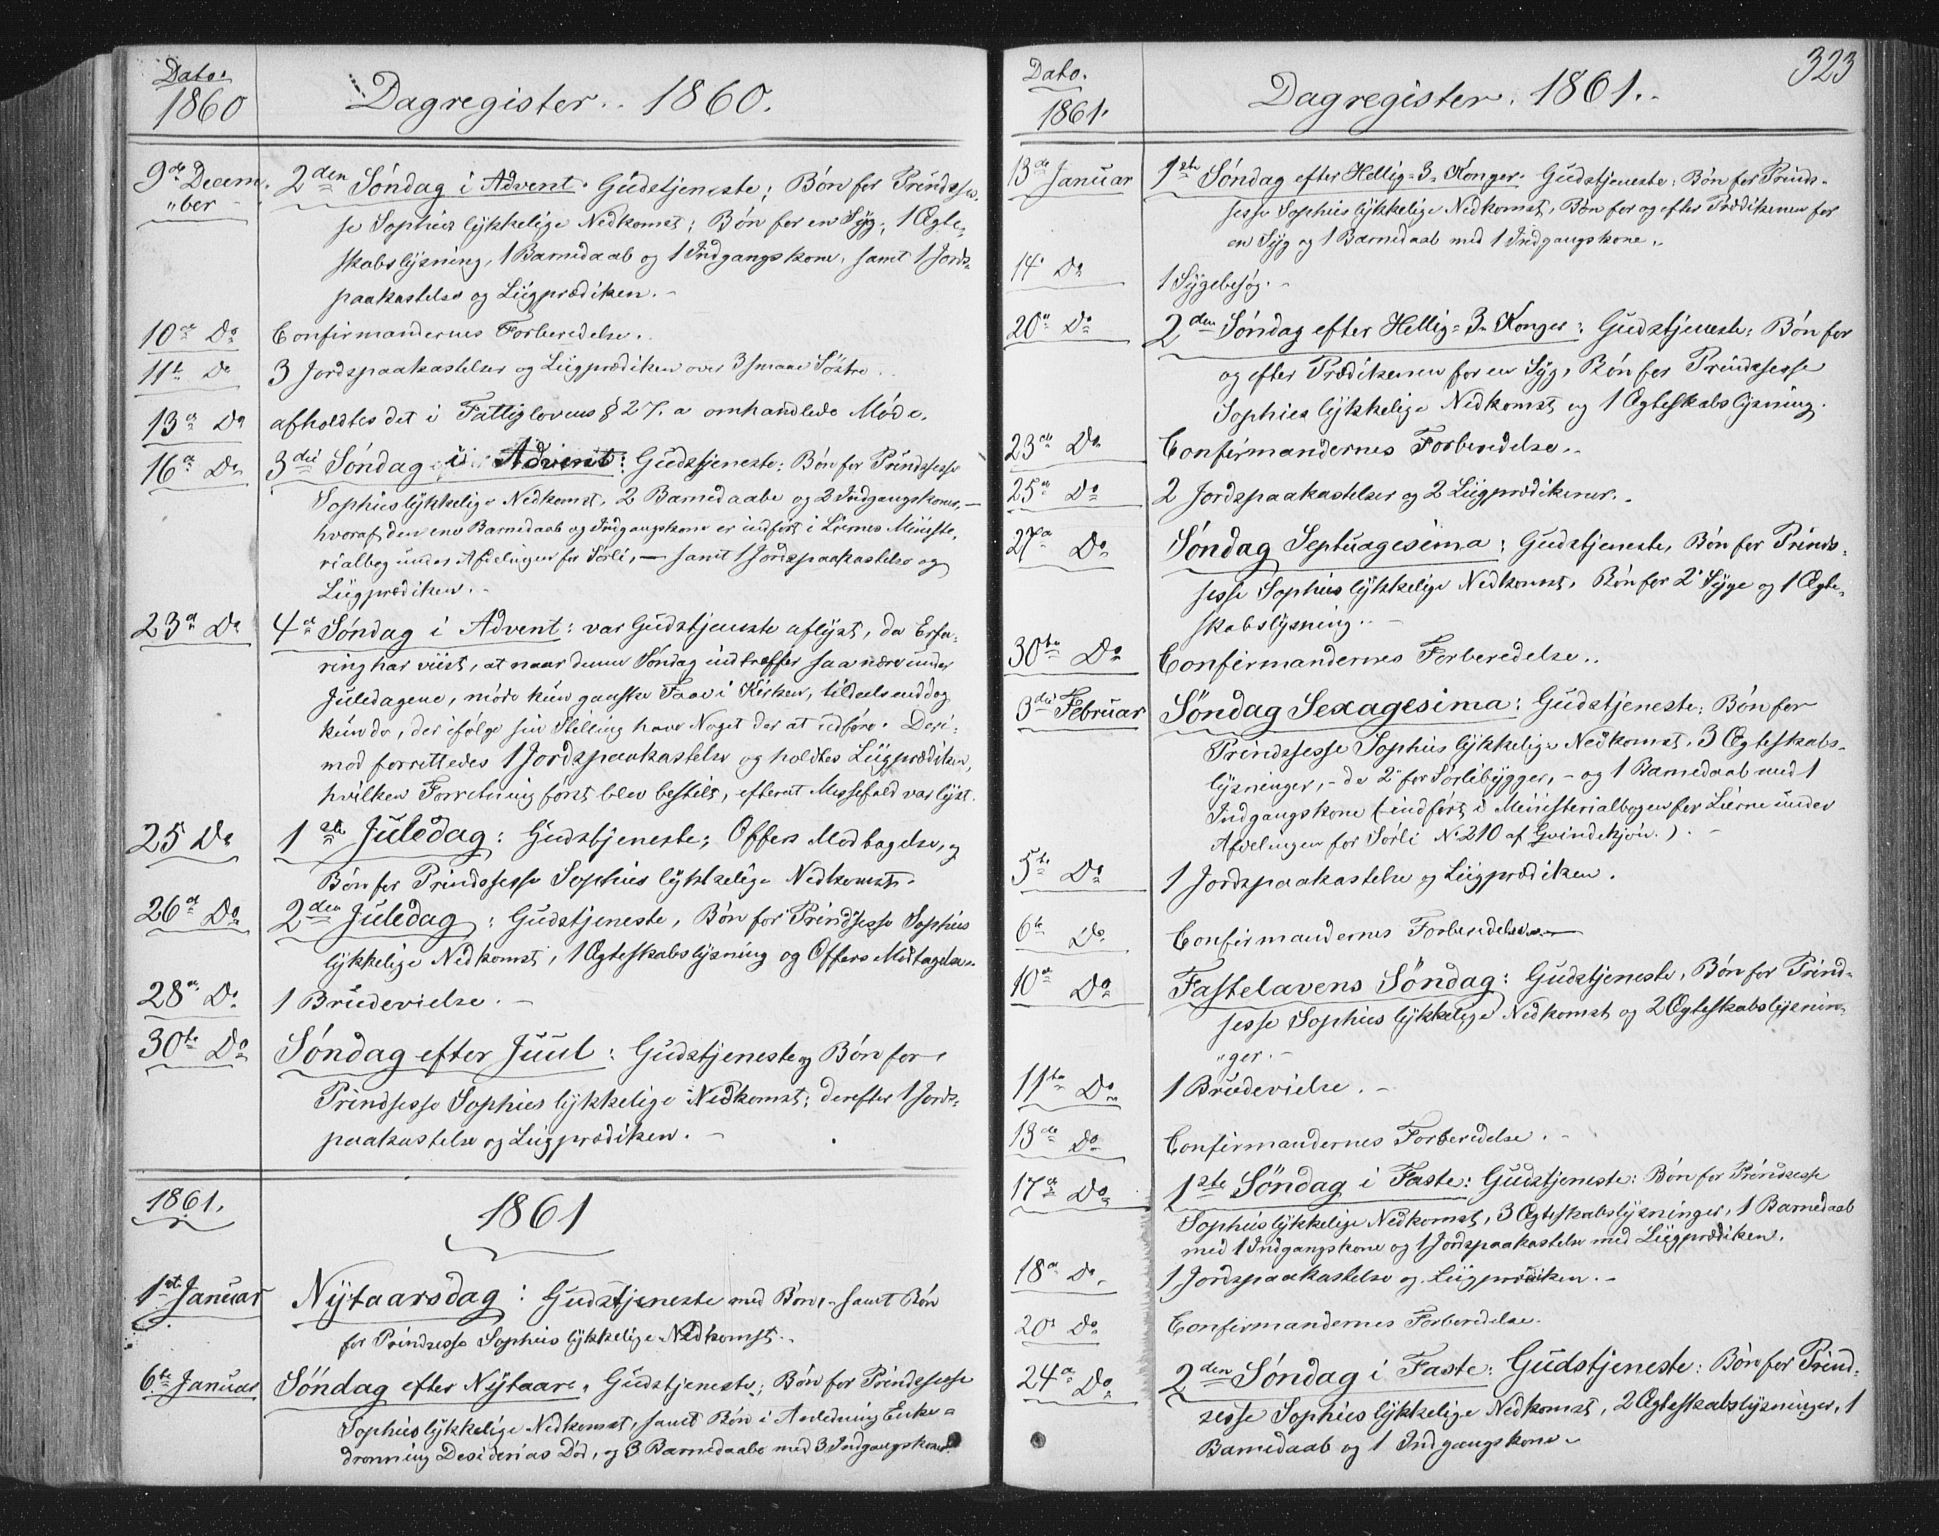 Dato.
1860
Dagregister. 1860.
9de Decem-
"ber
2den Søndag i Advent. Gudstjeneste; Bøn for Prindses-
se Sophies lykkelige Nedkomst; Bøn for en Syg; 1 Ægte-
skabslysning, 1 Barnedaab og 1 Indgangskone, samt 1 Jords-
paakastelse og Liigprædiken. -
10de Do
Confirmandernes Forberedelse.
11te Do
3 Jordspaakastelser og Liigprædiken over 3 smaae Søstre.
13de Do
afholdtes det i Fattiglovens § 27. a omhandlede Møde.
16de Do
3die Søndag i Advent: Gudstjeneste: Bøn for Prindsesse
Sophies lykkelige Nedkomst. 2 Barnedaabe og 2 Indgangskoner, -
hvoraf den ene Barnedaab og Indgangskone er indført i Liernes Ministe-
rialbog under Afdelingen for Sørli, - samt 1 Jordspaakastelse og
Liigprædiken. -
23de Do
4de Søndag i Advent: var Gudstjeneste aflyst, da Erfa-
ring har viist, at naar denne Søndag indtræffer saa nære under
Juledagene, møde kun ganske Faae i Kirken, tildeels endog
kun de, der ifølge sin Stilling have Noget der at udføre. Desi-
mod forrettedes 1 Jordspaakastelse og holdtes Liigprædiken,
hvilken Forretning først blev bestilt, efterat Messefald var lyst.
25 Do
1ste Juledag: Gudstjeneste; Offers Modtagelse, og
Bøn for Prindsesse Sophies lykkelige Nedkomst.
26de Do
2den Juledag: Gudstjeneste, Bøn for Prindsesse Sophies
lykkelige Nedkomst, 1 Ægteskabslysning og Offers Modtagelse.
28de Do
1 Brudevielse. -
30te Do
Søndag efter Juul: Gudstjeneste og Bøn for
Prindsesse Sophies lykkelige Nedkomst; derefter 1 Jords-
paakastelse og Liigprædiken. -
1861.
1861
1ste Januar
Nytaarsdag: Gudstjeneste med Bøn, samt Bøn
for Prindsesse Sophies lykkelige Nedkomst.
6te Januar
Søndag efter Nytaar, Gudstjeneste; Bøn for Prindsesse
Sophies lykkelige Nedkomst, samt Bøn i Anledning Enke-
dronning Desiderias Død, og 3 Barnedaabe med 3 Indgangskoner.
323
Dato.
1861.
Dagregister. 1861.
13de Januar
1ste Søndag efter Hellig-3-Konger. Gudstjeneste: Bøn for Prinds-
sesse Sophies lykkelige Nedkomst, Bøn for og efter Prædikenen for
en Syg og 1 Barnedaab med 1 Indgangskone.
14de Do
1 Sygebesøg. -
20de Do
2den Søndag efter Hellig-3-Konger: Gudstjeneste: Bøn for
og efter Prædikenen for en Syg, Bøn for Prindsesse
Sophies lykkelige Nedkomst og 1 Ægteskabslysning.
23de Do
Confirmandernes Forberedelse.
25de Do
2 Jordspaakastelser og 2 Liigprædikener. -
27de Do
Søndag Septuagesima: Gudstjeneste, Bøn for Prinds-
sesse Sophies lykkelige Nedkomst, Bøn for 2 Syge og 1 Ægte-
skabslysning. -
30te Do
Confirmandernes Forberedelse.
3die Februar
Søndag Sexagesima: Gudstjeneste: Bøn for
Prindsesse Sophies lykkelige Nedkomst, 3 Ægteskabs-
lysninger, - de 2 for Sørlibygger, - og 1 Barnedaab med 1
Indgangskone (indført i Ministerialbogen for Lierne under
Afdelingen for Sørli No 210 af Qvindekjøn.). -
5te Do
1 Jordspaakastelse og Liigprædiken.
6te Do
Confirmandernes Forberedelse.
10de Do
Fastelavens Søndag: Gudstjeneste, Bøn for Prind-
sesse Sophies lykkelige Nedkomst og 2 Ægteskabslysnin-
"ger. -
11te Do
1 Brudevielse. -
13de Do
Confirmandernes Forberedelse. -
17de Do
1ste Søndag i Faste: Gudstjeneste: Bøn for Prindsesse
Sophies lykkelige Nedkomst, 3 Ægteskabslysninger, 1 Barnedaab
med 1 Indgangskone og 1 Jordspaakastelse med Liigprædiken.
18de Do
1 Jordspaakastelse og Liigprædiken. -
20de Do
Confirmandernes Forberedelse.
24de Do
2den Søndag i Faste: Gudstjeneste: Bøn for Prind-
sesse Sophies lykkelige Nedkomst, 2 Ægteskabslysninger, 1
Barnedaab og 1 Indgangskone.